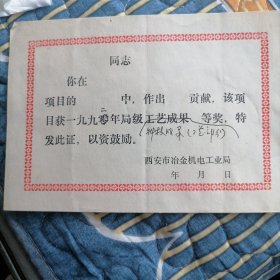 同志
你在
项目的 中，作出 贡献，该项
目获一九九〇年局级工艺成果 等奖，特
发此证，以资鼓励。
西安市冶金机电工业局
年 月 日